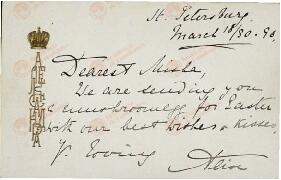 St. Petersburg.
March 18/30. 96.
Dearest Misha,
We are sending you
a mushroomegg for Easter
with our best wishes & kisses.
Y. loving
Alix